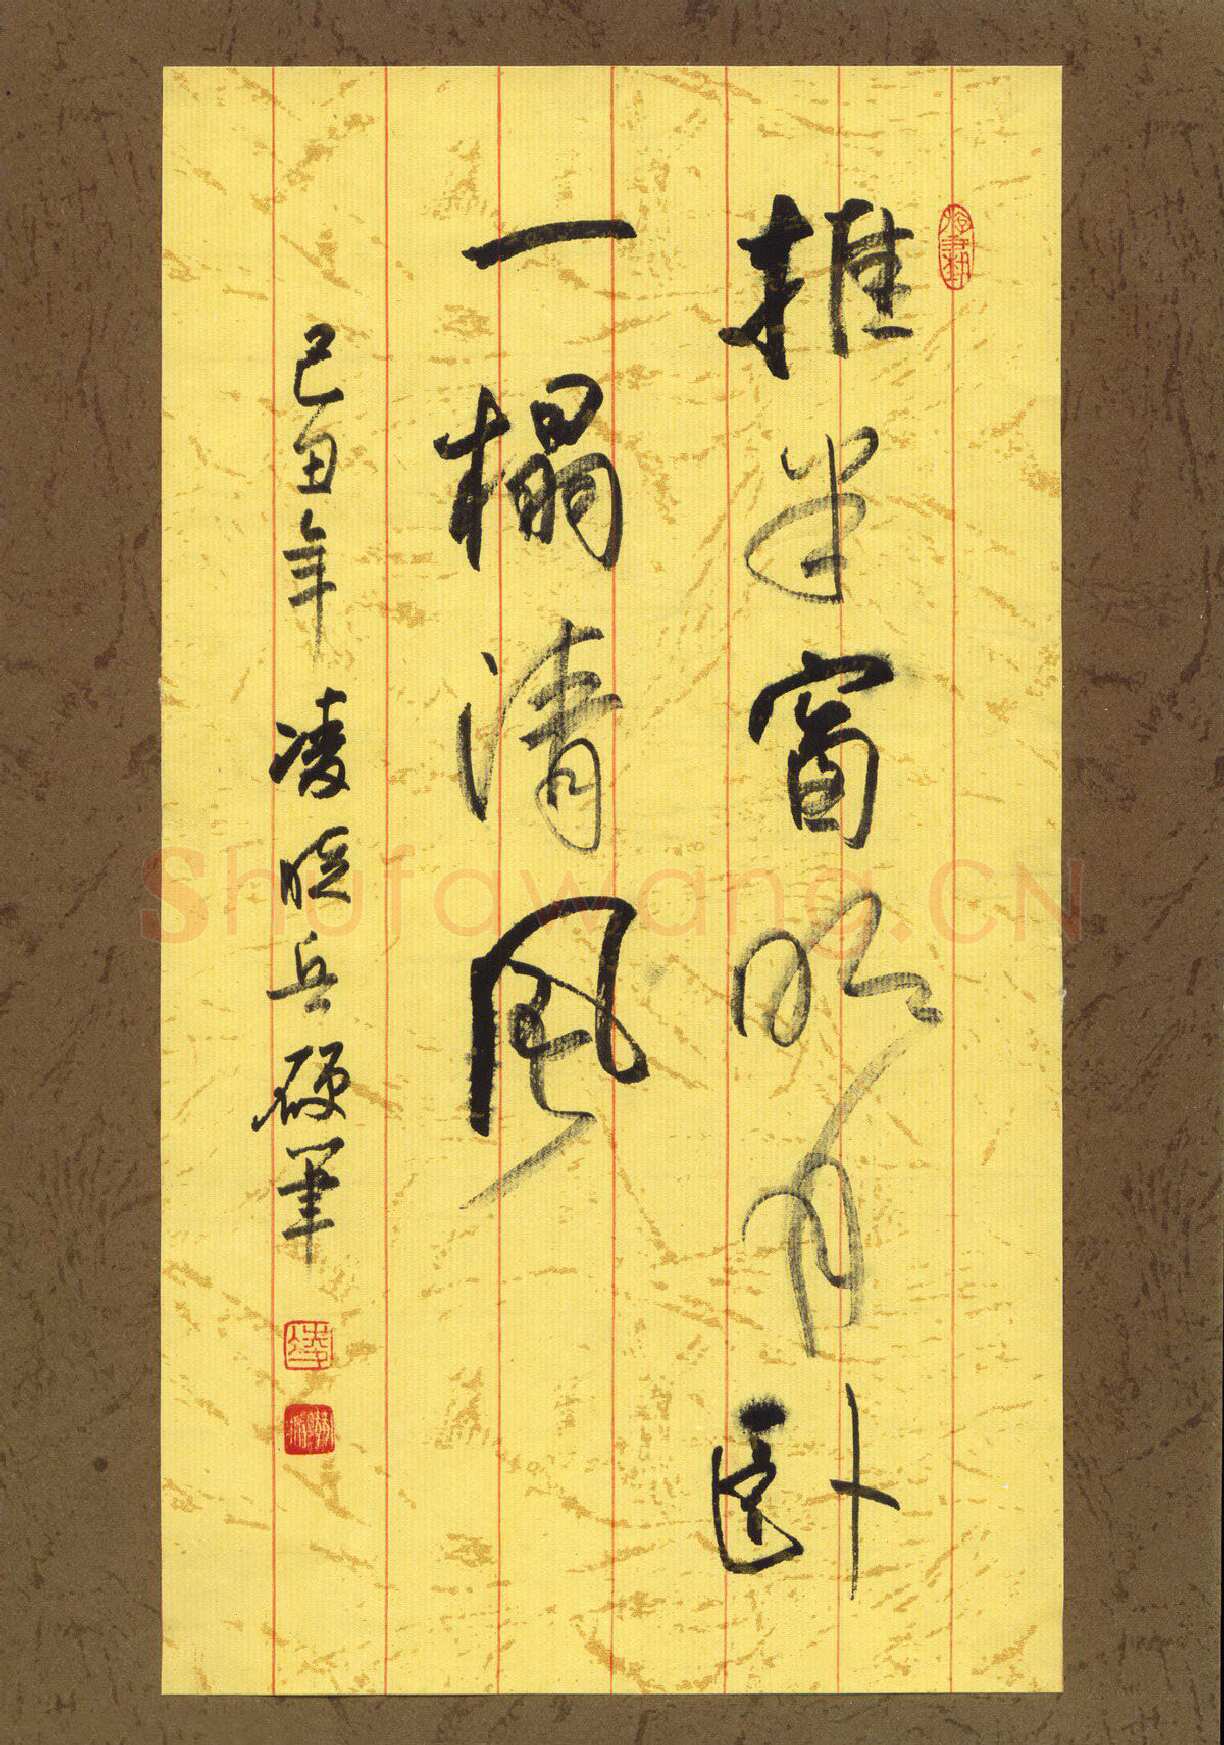 推半窗明月卧
一榻清风
己丑年凌晓兵硬笔
Shufawang.CN